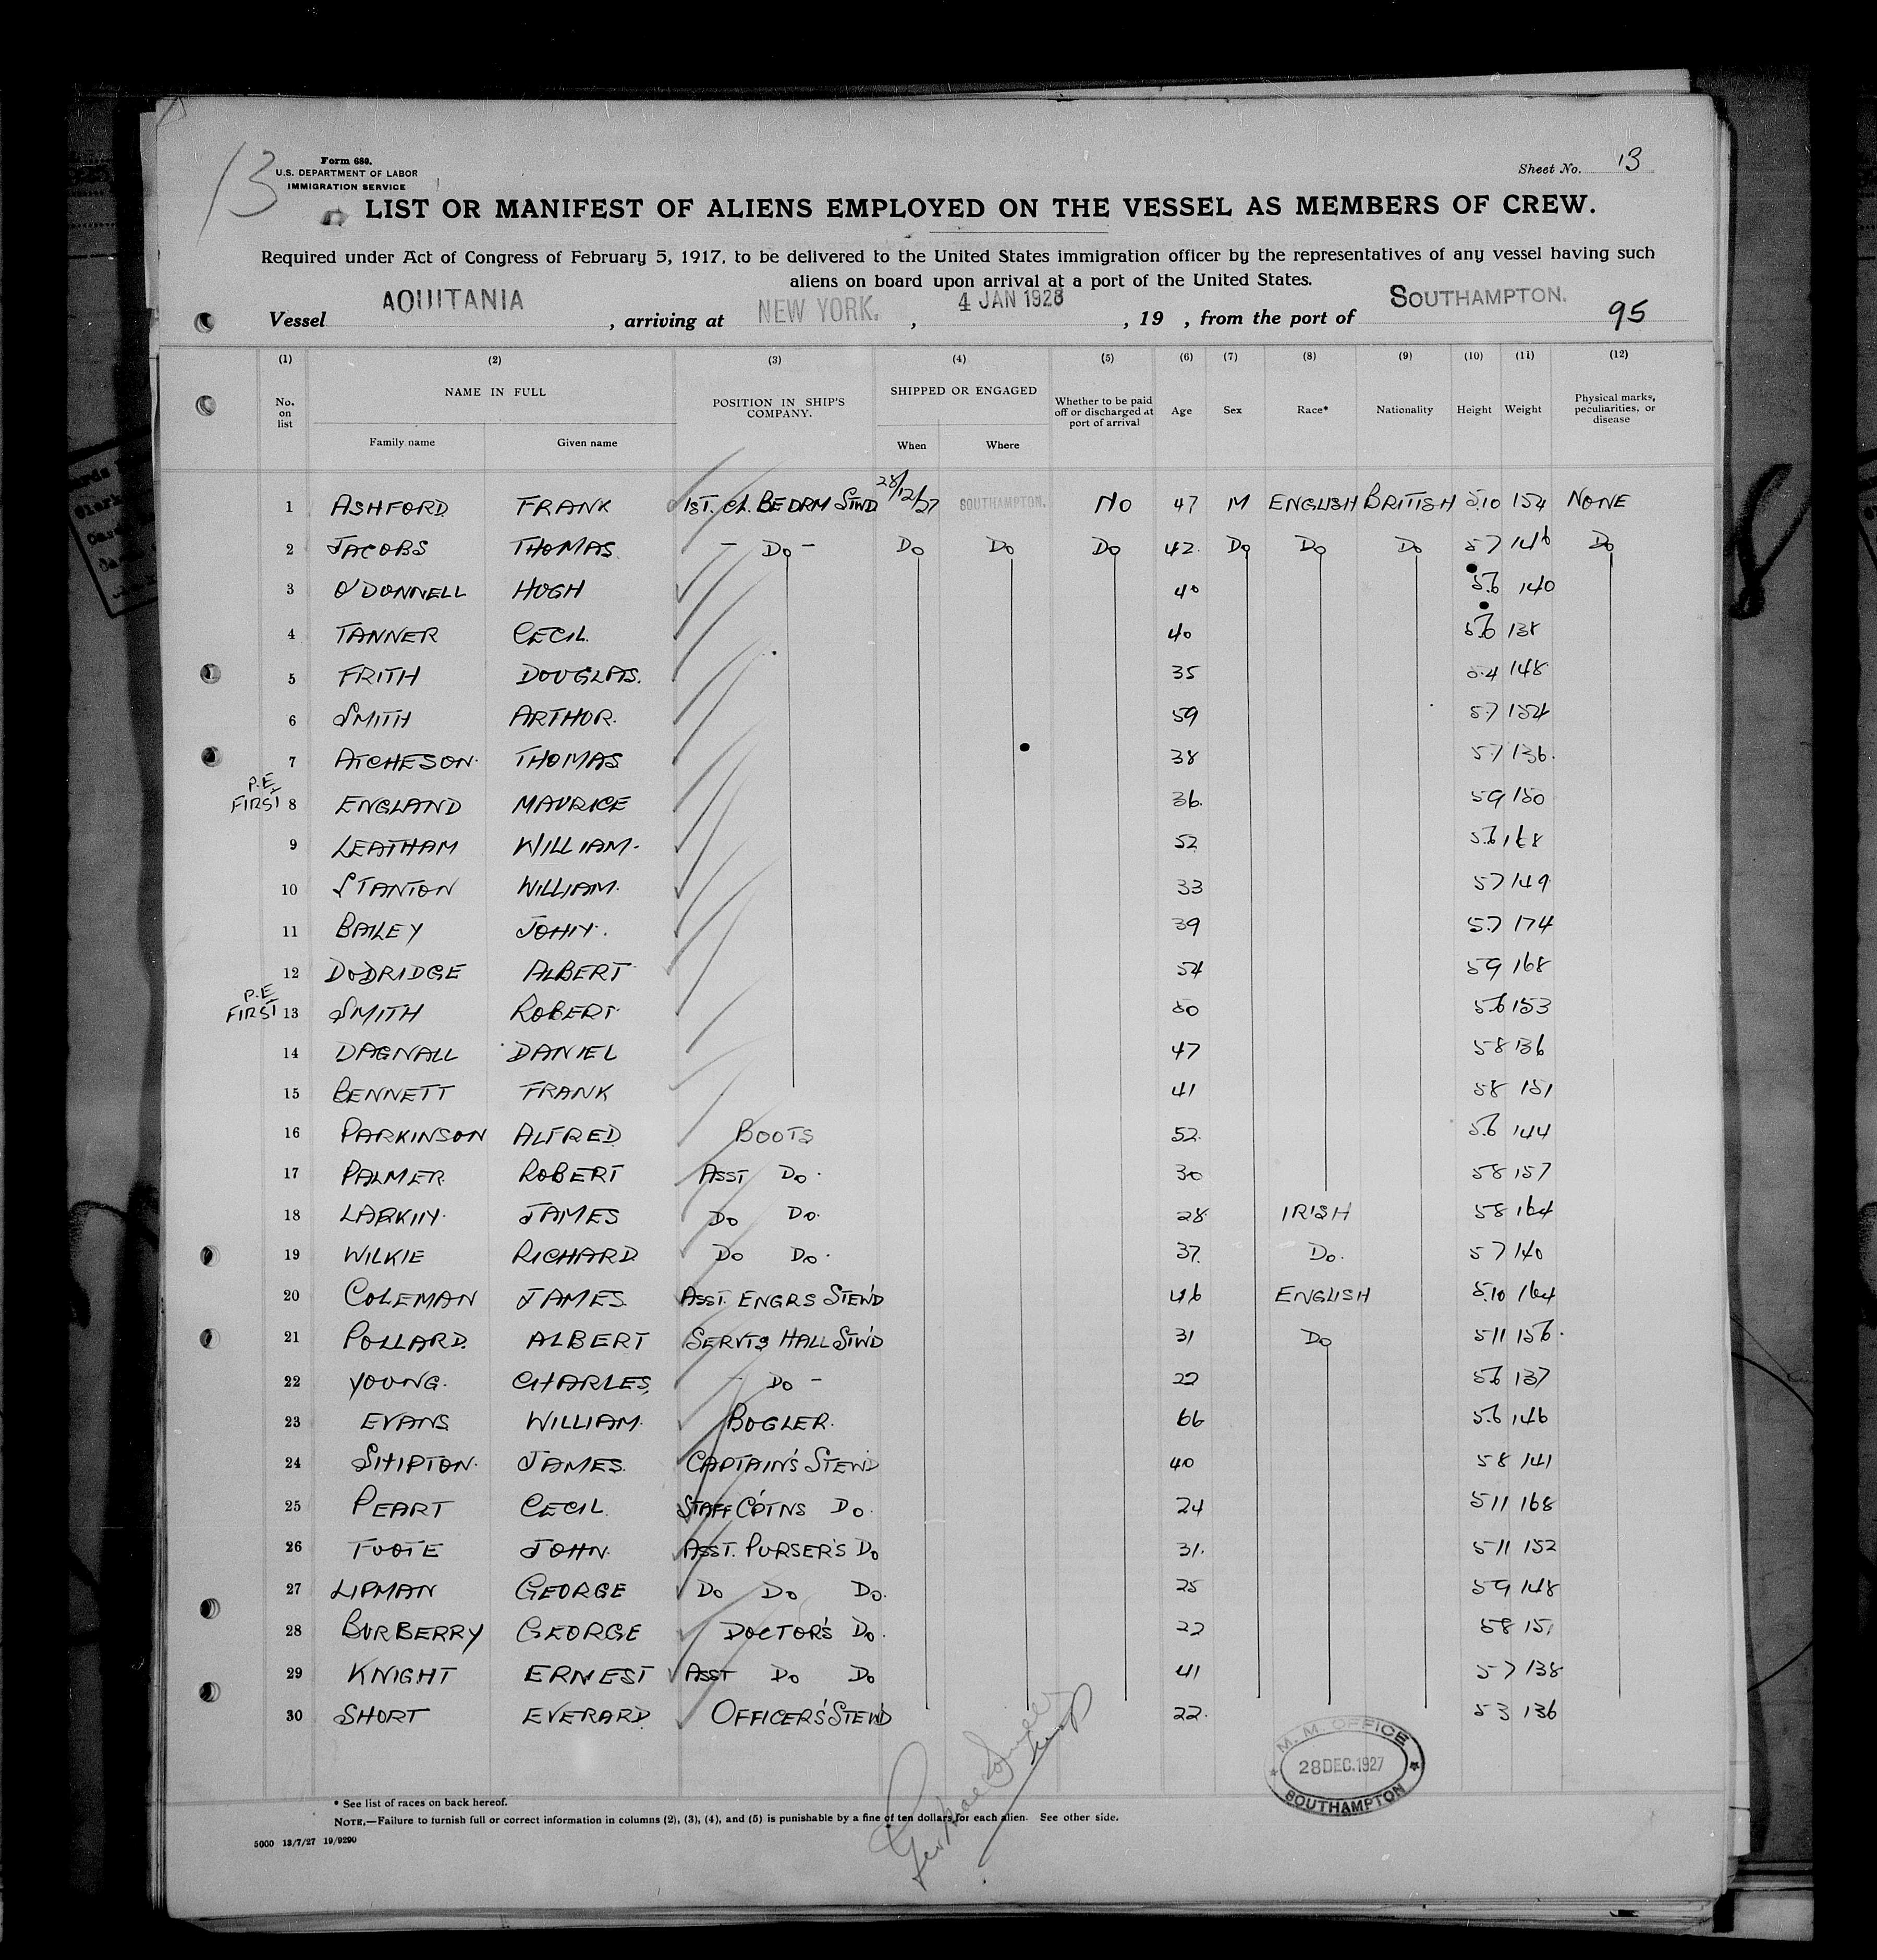 13
Form 680.
U.S. DEPARTMENT OF LABOR
IMMIGRATION SERVICE
Sheet No. 13
LIST OR MANIFEST OF ALIENS EMPLOYED ON THE VESSEL AS MEMBERS OF CREW.
Required under Act of Congress of February 5, 1917, to be delivered to the United States immigration officer by the representatives of any vessel having such
aliens on board upon arrival at a port of the United States.
Vessel AQUITANIA, arriving at NEW YORK., 4 JAN 1928, 19 , from the port of SOUTHAMPTON. 95
(1) (2) (3) (4) (5) (6) (7) (8) (9) (10) (11) (12)
No. on list NAME IN FULL POSITION IN SHIP'S COMPANY. SHIPPED OR ENGAGED Whether to be paid off or discharged at port of arrival Age Sex Race* Nationality Height Weight Physical marks, peculiarities, or disease
Family name Given name When Where
1 ASHFORD FRANK 1ST. CL. BEDRM STWD 28/12/27 SOUTHAMPTON. NO 47 M ENGLISH BRITISH 5.10 154 NONE
2 JACOBS THOMAS - Do - Do Do Do 42 Do Do Do 57 146 Do
3 O'DONNELL HUGH 40 5.6 140
4 TANNER CECIL. 40 5.6 138
5 FRITH DOUGLAS. 35 5.4 148
6 SMITH ARTHUR. 59 5.7 154
7 ATCHESON THOMAS 38 57 136.
P.E. FIRST 8 ENGLAND MAURICE 36. 59 150
9 LEATHAM WILLIAM. 52 5.6 168
10 STANTON WILLIAM. 33 57 149
11 BAILEY JOHN. 39 5.7 174
12 DODRIDGE ALBERT 54 59 168
P.E. FIRST 13 SMITH ROBERT 50 5.6 153
14 DAGNALL DANIEL 47 58 136
15 BENNETT FRANK 41 58 151
16 PARKINSON ALFRED 52. BOOTS 5.6 144
17 PALMER ROBERT ASST Do. 30 58 157
18 LARKIN JAMES Do Do. 28 IRISH 58 164
19 WILKIE RICHARD Do Do. 37. Do. 57 140
20 COLEMAN JAMES ASST. ENGRS STEWD 46 ENGLISH 5.10 164
21 POLLARD ALBERT SERVTS HALL STWD 31 Do 511 156.
22 YOUNG. CHARLES - Do - 22 5.6 137
23 EVANS WILLIAM BUGLER. 66 5.6 146
24 SHIPTON JAMES. CAPTAIN'S STEWD 40 58 141
25 PEART CECIL STAFF CPTNS Do. 24 511 168
26 TUOTE JOHN ASST. PURSER'S Do 31. 511 152
27 LIPMAN GEORGE Do Do Do. 25 59 148
28 BURBERRY GEORGE DOCTOR'S Do. 22 58 151
29 KNIGHT ERNEST ASST Do Do 41 57 138
30 SHORT EVERARD OFFICER'S STEWD 22. 53 136
M. M. OFFICE
28 DEC. 1927
SOUTHAMPTON
* See list of races on back hereof.
NOTE.—Failure to furnish full or correct information in columns (2), (3), (4), and (5) is punishable by a fine of ten dollars for each alien. See other side.
5000 13/7/27 19/9290